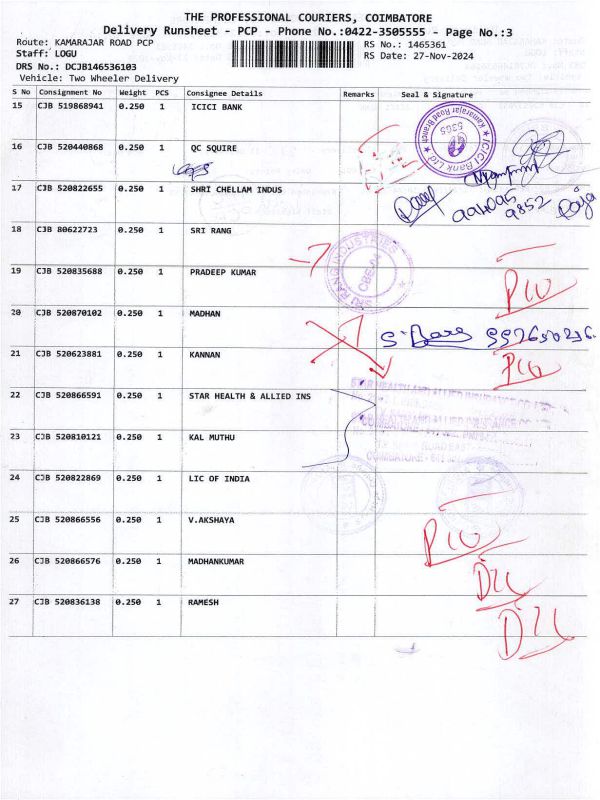 THE PROFESSIONAL COURIERS, COIMBATORE
Delivery Runsheet - PCP - Phone No.:0422-3505555 - Page No.:3
Route: KAMARAJAR ROAD PCP RS No.: 1465361
Staff: LOGU RS Date: 27-Nov-2024
DRS No.: DCJB146536103
Vehicle: Two Wheeler Delivery
S No Consignment No Weight PCS Consignee Details Remarks Seal & Signature
15 CJB 519868941 0.250 1 ICICI BANK
ICICI Bank Ltd Kamarajar Road Branch 5365
16 CJB 520440868 0.250 1 QC SQUIRE
17 CJB 520822655 0.250 1 SHRI CHELLAM INDUS
9852
18 CJB 80622723 0.250 1 SRI RANG
SRI RANG INDUSTRIES CBE
19 CJB 520835688 0.250 1 PRADEEP KUMAR
20 CJB 520870102 0.250 1 MADHAN
21 CJB 520623881 0.250 1 KANNAN
22 CJB 520866591 0.250 1 STAR HEALTH & ALLIED INS
STAR HEALTH AND ALLIED INSURANCE CO
23 CJB 520810121 0.250 1 KAL MUTHU
24 CJB 520822869 0.250 1 LIC OF INDIA
25 CJB 520866556 0.250 1 V.AKSHAYA
26 CJB 520866576 0.250 1 MADHANKUMAR
27 CJB 520836138 0.250 1 RAMESH